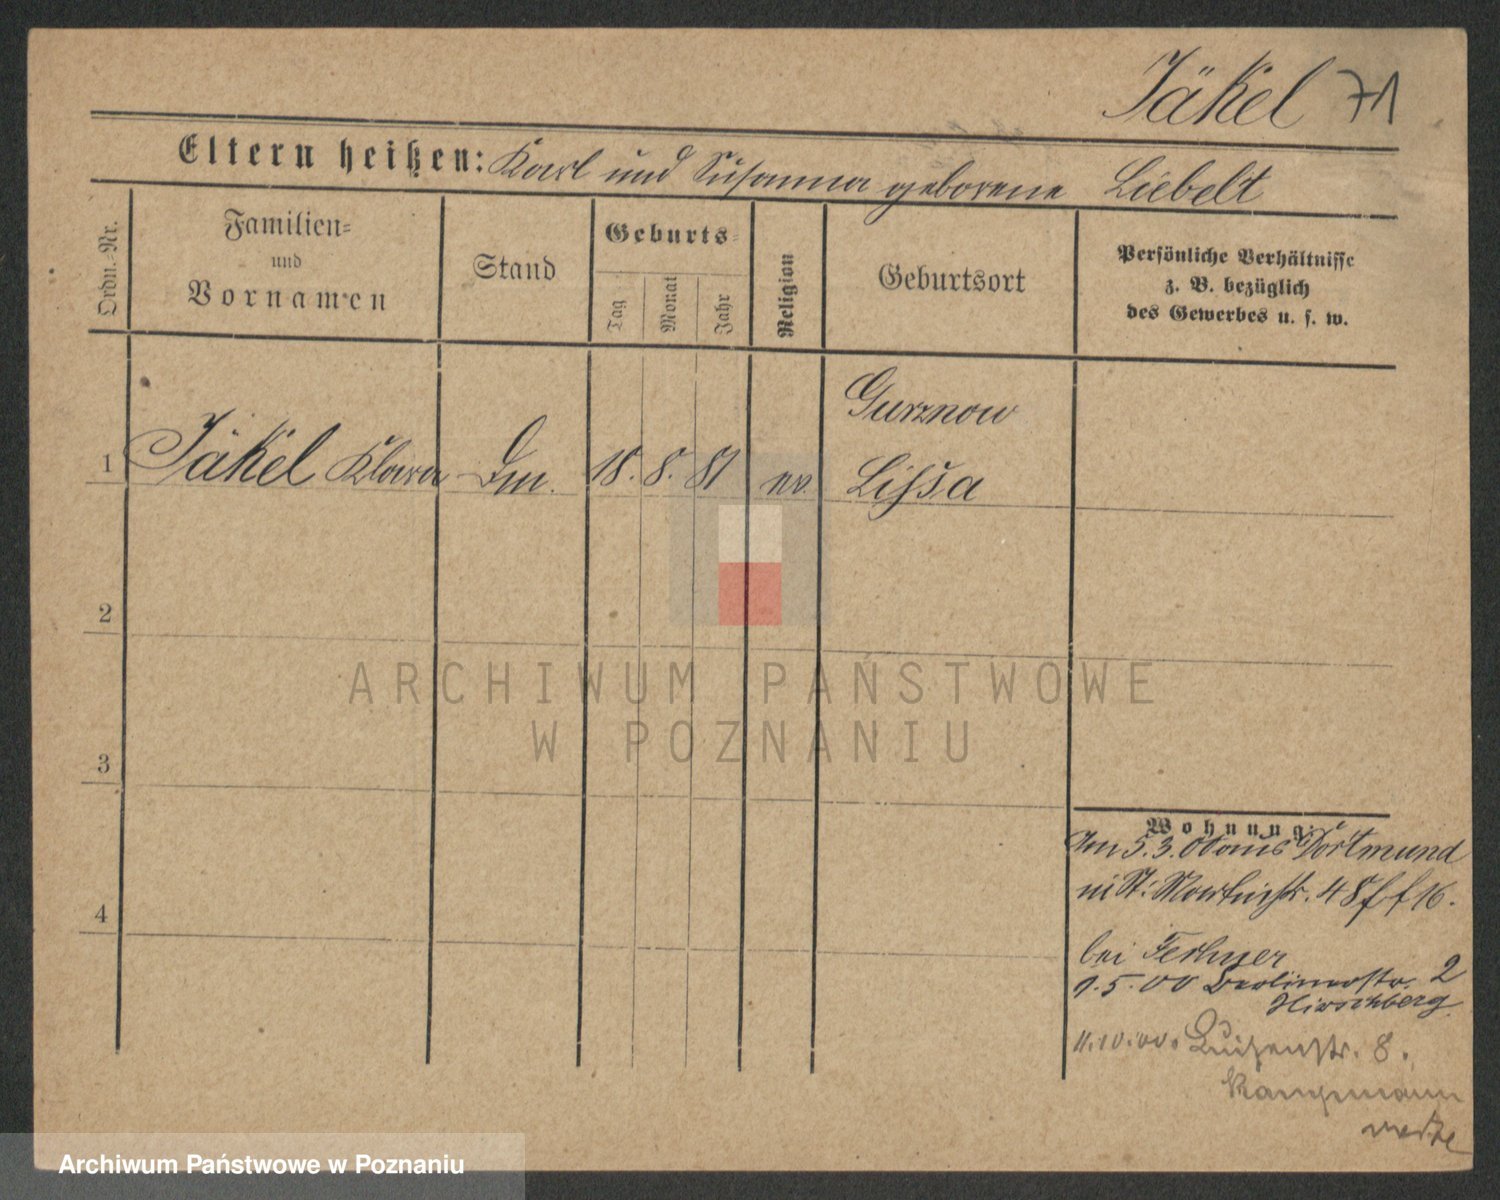 Jäkel 71
Eltern heißen: Karl und Susanna geborene Liebelt
Ordn.-Nr.
Familien-
und
Vornamen
Stand
Geburts-
Tag
Monat
Jahr
Religion
Geburtsort
Persönliche Verhältnisse
z. B. bezüglich
des Gewerbes u. s. w.
Gurznow
1 Jäkel Klara Dm. 18. 8. 81 ev. Lissa
2
3
4
ARCHIWUM PAŃSTWOWE
W POZNANIU
Wohnung:
Am 5.3.00 aus Dortmund
St. Martinstr. 48 16.
bei
1.5.00 Berlinerstr. 2
Hirschberg
11.10.00. Luisenstr. 8.
Archiwum Państwowe w Poznaniu